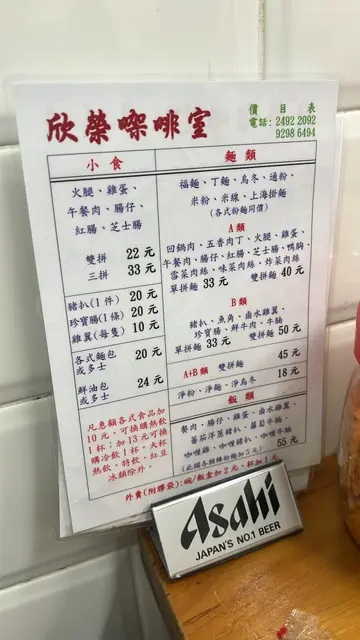 欣榮咖啡室
價目表
電話：2492 2092
9298 6494
小食
火腿、雞蛋、
午餐肉、腸仔、
紅腸、芝士腸
雙拼 22 元
三拼 33 元
豬扒(1 件) 20 元
珍寶腸(1 條) 20 元
雞翼(每隻) 10 元
各式麵包
或多士 20 元
鮮油包
或多士 24 元
凡惠顧各式食品加
10 元，可換購熱飲
1 杯；加 13 元可換
購冷飲 1 杯。大杯
熱飲、特飲、紅豆
冰類除外。
麵類
福麵、丁麵、烏冬、通粉、
米粉、米線、上海掛麵
(各式粉麵同價)
A 類
回鍋肉、五香肉丁、火腿、雞蛋、
午餐肉、腸仔、紅腸、芝士腸、鴨胸、
雪菜肉絲、味菜肉絲、炸菜肉絲
單拼麵 33 元 雙拼麵 40 元
B 類
豬扒、魚角、鹵水雞翼、
珍寶腸、鮮牛肉、牛腩
單拼麵 33 元 雙拼麵 50 元
A+B 類 雙拼麵 45 元
淨粉、淨麵、淨烏冬 18 元
飯類
餐肉、腸仔、雞蛋、鹵水雞翼、
蕃茄洋蔥豬扒、蘿蔔牛腩、
咖喱雞、咖喱豬扒、咖喱牛腩
55 元
(此欄各餸轉粉麵加 5 元)
外賣(附膠袋)：碗/飯盒加 2 元、杯加 1 元
Asahi
JAPAN'S NO.1 BEER